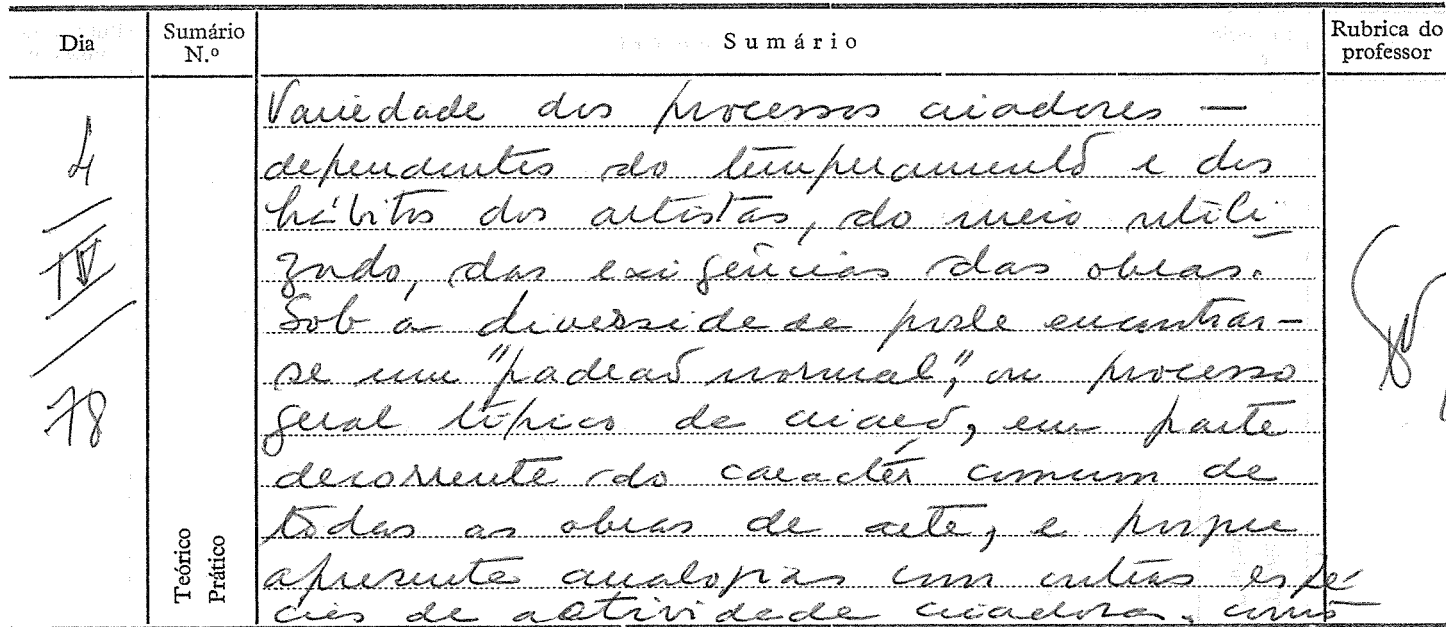 Dia
Sumário N.º
Sumário
Rubrica do professor
4
IV
78
Variedade dos processos criadores —
dependentes do temperamento e dos
hábitos dos artistas, do meio utili-
zado, das exigências das obras.
Sob a diversidade pode encontrar-
se um "padrão normal", ou processo
geral típico de criação, em parte
decorrente do carácter comum de
todas as obras de arte, e porque
apresenta analogias com outras espé-
cies de actividade criadora, como
Teórico
Prático